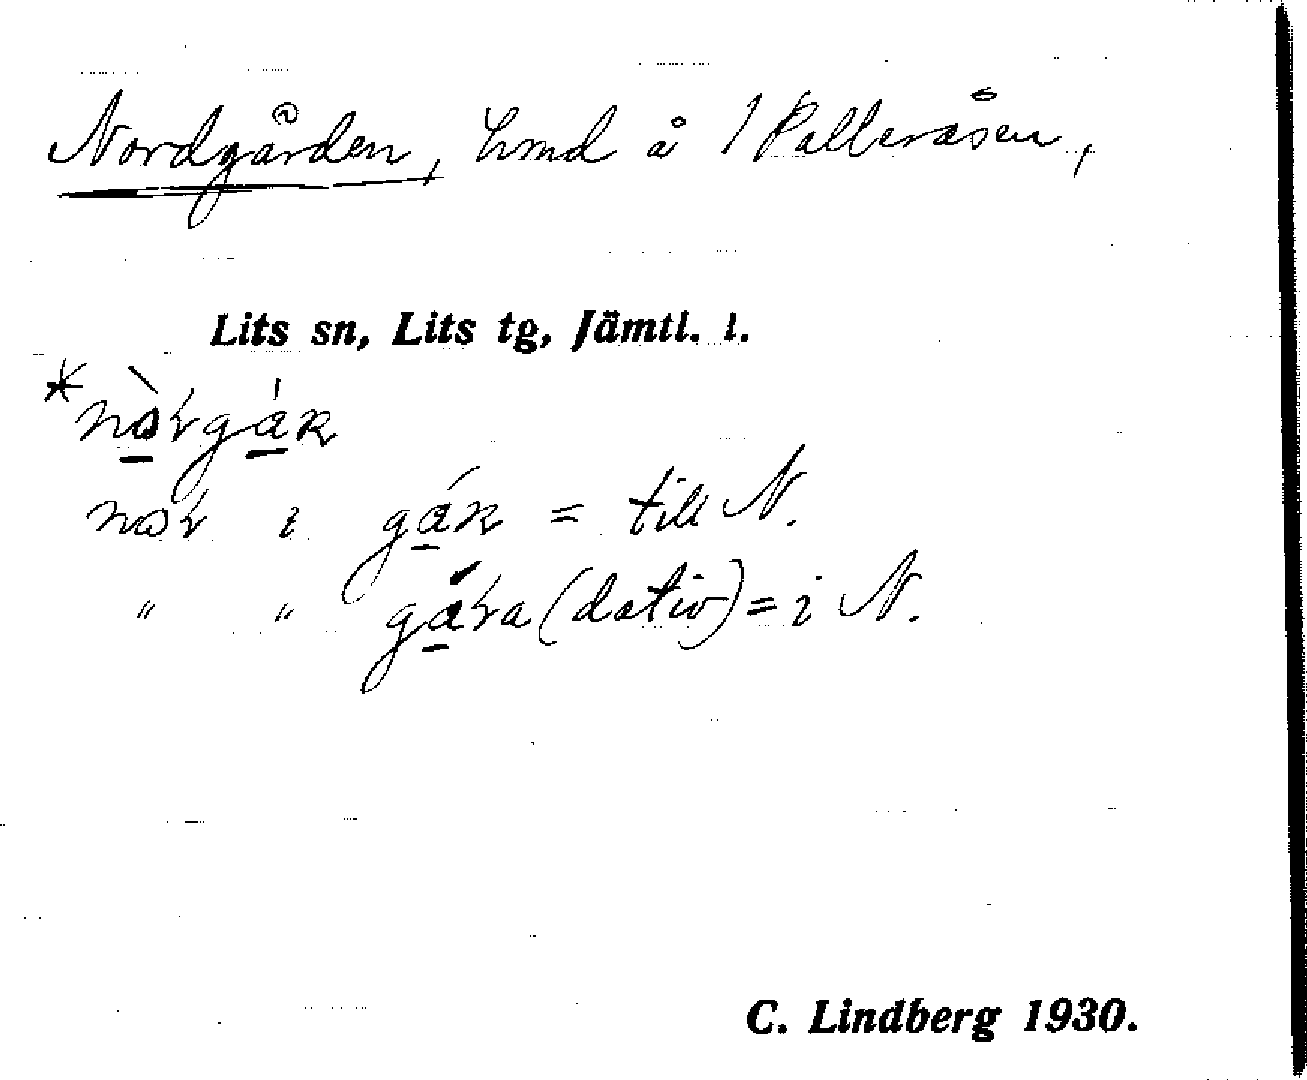 Nordgården, hmd å 1 Palleråsen,
Lits sn, Lits tg, Jämtl. l.
*nòrgán
nor i gán = till N.
" " gára (dativ) = i N.
C. Lindberg 1930.